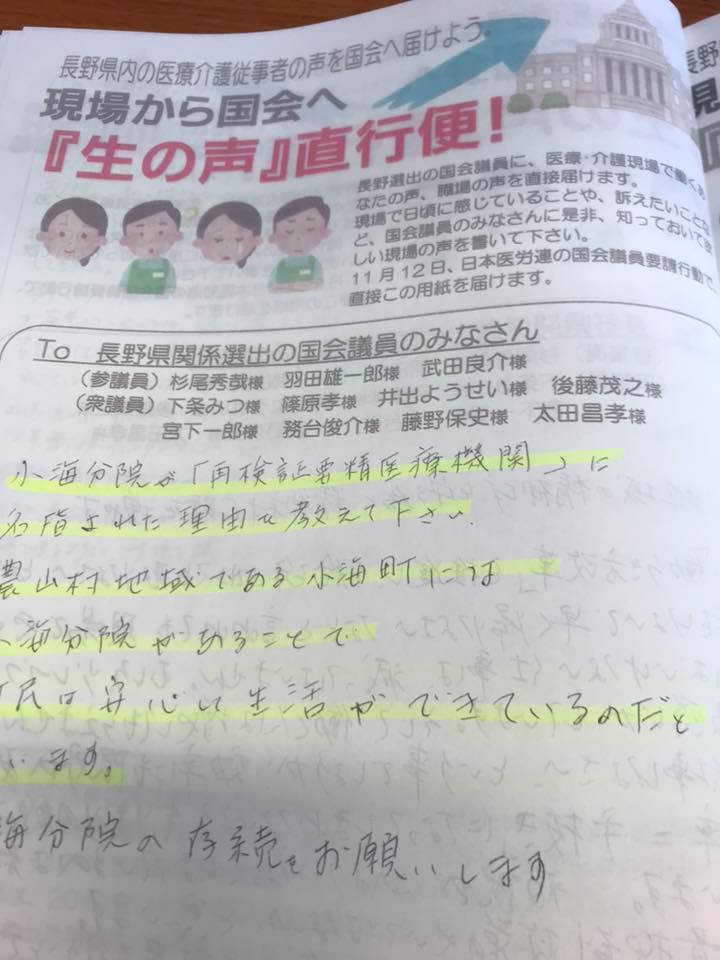 長野県内の医療介護従事者の声を国会へ届けよう。
現場から国会へ
『生の声』直行便!
長野選出の国会議員に、医療・介護現場で働くあ
なたの声、職場の声を直接届けます。
現場で日頃に感じていることや、訴えたいことな
ど、国会議員のみなさんに是非、知っておいて欲
しい現場の声を書いて下さい。
11月12日、日本医労連の国会議員要請行動で、
直接この用紙を届けます。
To 長野県関係選出の国会議員のみなさん
(参議員)杉尾秀哉様 羽田雄一郎様 武田良介様
(衆議員)下条みつ様 篠原孝様 井出ようせい様 後藤茂之様
宮下一郎様 務台俊介様 藤野保史様 太田昌孝様
小海分院が「再検証要精医療機関」に
名指された理由を教えて下さい
農山村地域である小海町には
海分院があることで
民は安心して生活ができているのだと
います。
海分院の存続をお願いします
長野
見